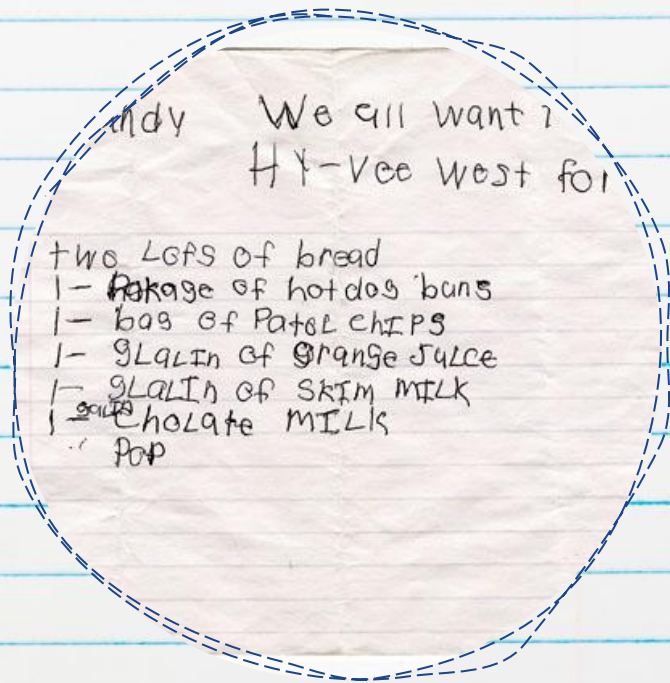 We all want
HY-Vee West for
two Lofs of bread
1- Pakage of hotdog buns
1- bag of Patol chIPS
1- gLaLIn of Orange JuIce
1- gLaLIn of SkIm MILK
1- galIn Cholate MILK
" Pop